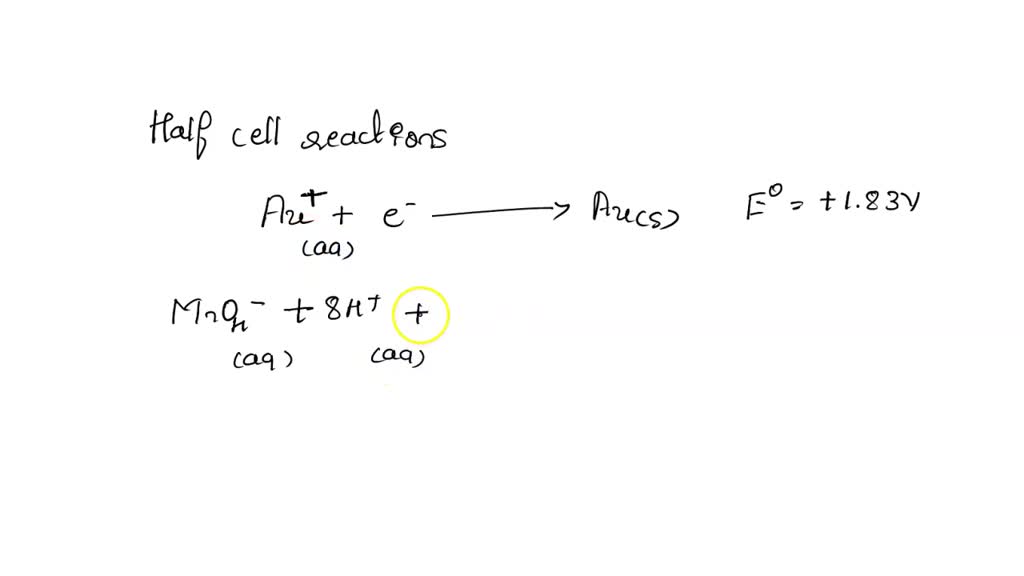 Half cell reactions
Au⁺ + e⁻ ⟶ Au(s) E⁰ = +1.83V
(aq)
MnO₄⁻ + 8H⁺ +
(aq) (aq)